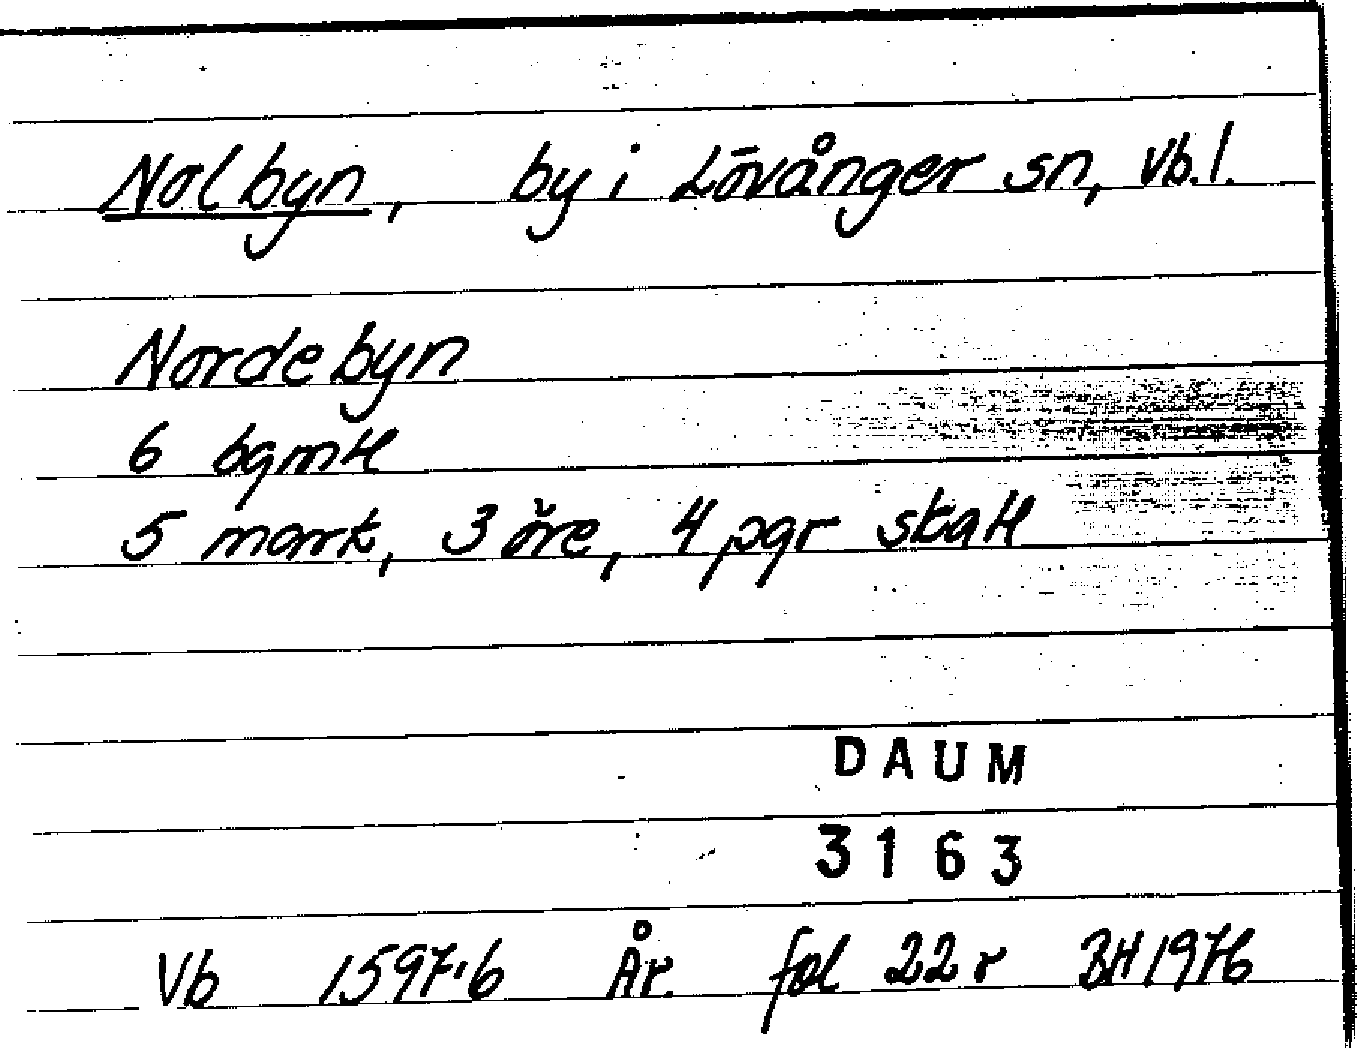 Nolbyn, by i Lövånger sn, Vb.l.
Nordebyn
6 bgmtl
5 mark, 3 öre, 4 pgr skatt
DAUM
3163
Vb 1597:6 År. fol 22r BH 1976